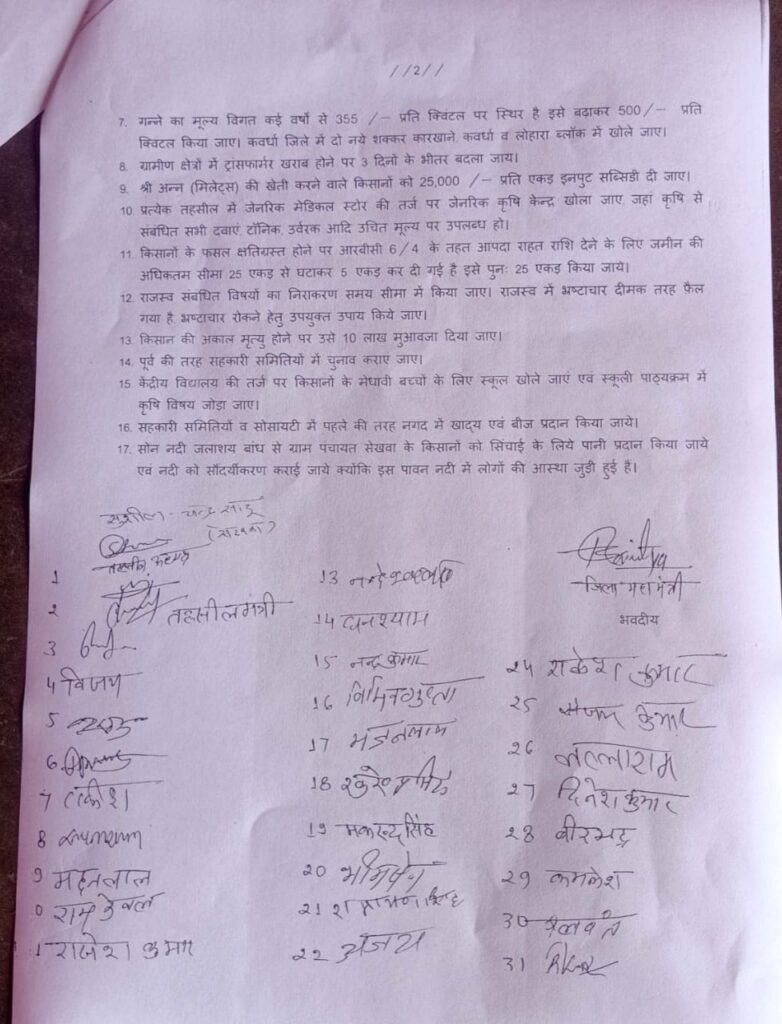 //2//
7. गन्ने का मूल्य विगत कई वर्षों से 355 /– प्रति क्विंटल पर स्थिर है इसे बढाकर 500/– प्रति
क्विटल किया जाए। कवर्धा जिले में दो नये शक्कर कारखाने, कवर्धा व लोहारा ब्लॉक में खोले जाए।
8. ग्रामीण क्षेत्रों में ट्रांसफार्मर खराब होने पर 3 दिनों के भीतर बदला जाय।
9. श्री अन्न (मिलेट्स) की खेती करने वाले किसानों को 25,000 /– प्रति एकड़ इनपुट सब्सिडी दी जाए।
10. प्रत्येक तहसील में जेनरिक मेडिकल स्टोर की तर्ज पर जेनरिक कृषि केन्द्र खोला जाए, जहां कृषि से
संबंधित सभी दवाएं, टॉनिक, उर्वरक आदि उचित मूल्य पर उपलब्ध हो।
11. किसानों के फसल क्षतिग्रस्त होने पर आरबीसी 6/4 के तहत आपदा राहत राशि देने के लिए जमीन की
अधिकतम सीमा 25 एकड़ से घटाकर 5 एकड़ कर दी गई है इसे पुनः 25 एकड़ किया जाये।
12. राजस्व संबंधित विषयों का निराकरण समय सीमा में किया जाए। राजस्व में भ्रष्टाचार दीमक तरह फ़ैल
गया है, भ्रष्टाचार रोकने हेतु उपयुक्त उपाय किये जाए।
13. किसान की अकाल मृत्यु होने पर उसे 10 लाख मुआवजा दिया जाए।
14. पूर्व की तरह सहकारी समितियों में चुनाव कराएं जाए।
15. केंद्रीय विद्यालय की तर्ज पर किसानों के मेधावी बच्चों के लिए स्कूल खोले जाएं एवं स्कूली पाठ्यक्रम में
कृषि विषय जोड़ा जाए।
16. सहकारी समितियों व सोसायटी में पहले की तरह नगद में खाद्य एवं बीज प्रदान किया जाये।
17. सोन नदी जलाशय बांध से ग्राम पंचायत सेखवा के किसानों को सिंचाई के लिये पानी प्रदान किया जाये
एवं नदी को सौंदर्यीकरण कराई जाये क्योंकि इस पावन नदी में लोगों की आस्था जुडी हुई है।
सुशील
तहसील अध्यक्ष
1
2 तहसील मंत्री
3
4 विजय
5
6
7
8
9 मदनलाल
0 राम केवल
1 राजेश कुमार
13
14 घनश्याम
15 नन्द कुमार
16
17
18
19
20
21
22 अजय
जिला महामंत्री
भवदीय
24 राकेश कुमार
25 कुमार
26 लल्लाराम
27 दिनेश कुमार
28 बीरभद्र
29 कमलेश
30
31